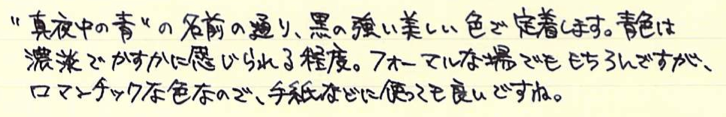 "真夜中の青"の名前の通り、黒の強い美しい色で定着します。青色は
濃淡でかすかに感じられる程度。フォーマルな場でももちろんですが、
ロマンチックな色なので、手紙などに使っても良いですね。